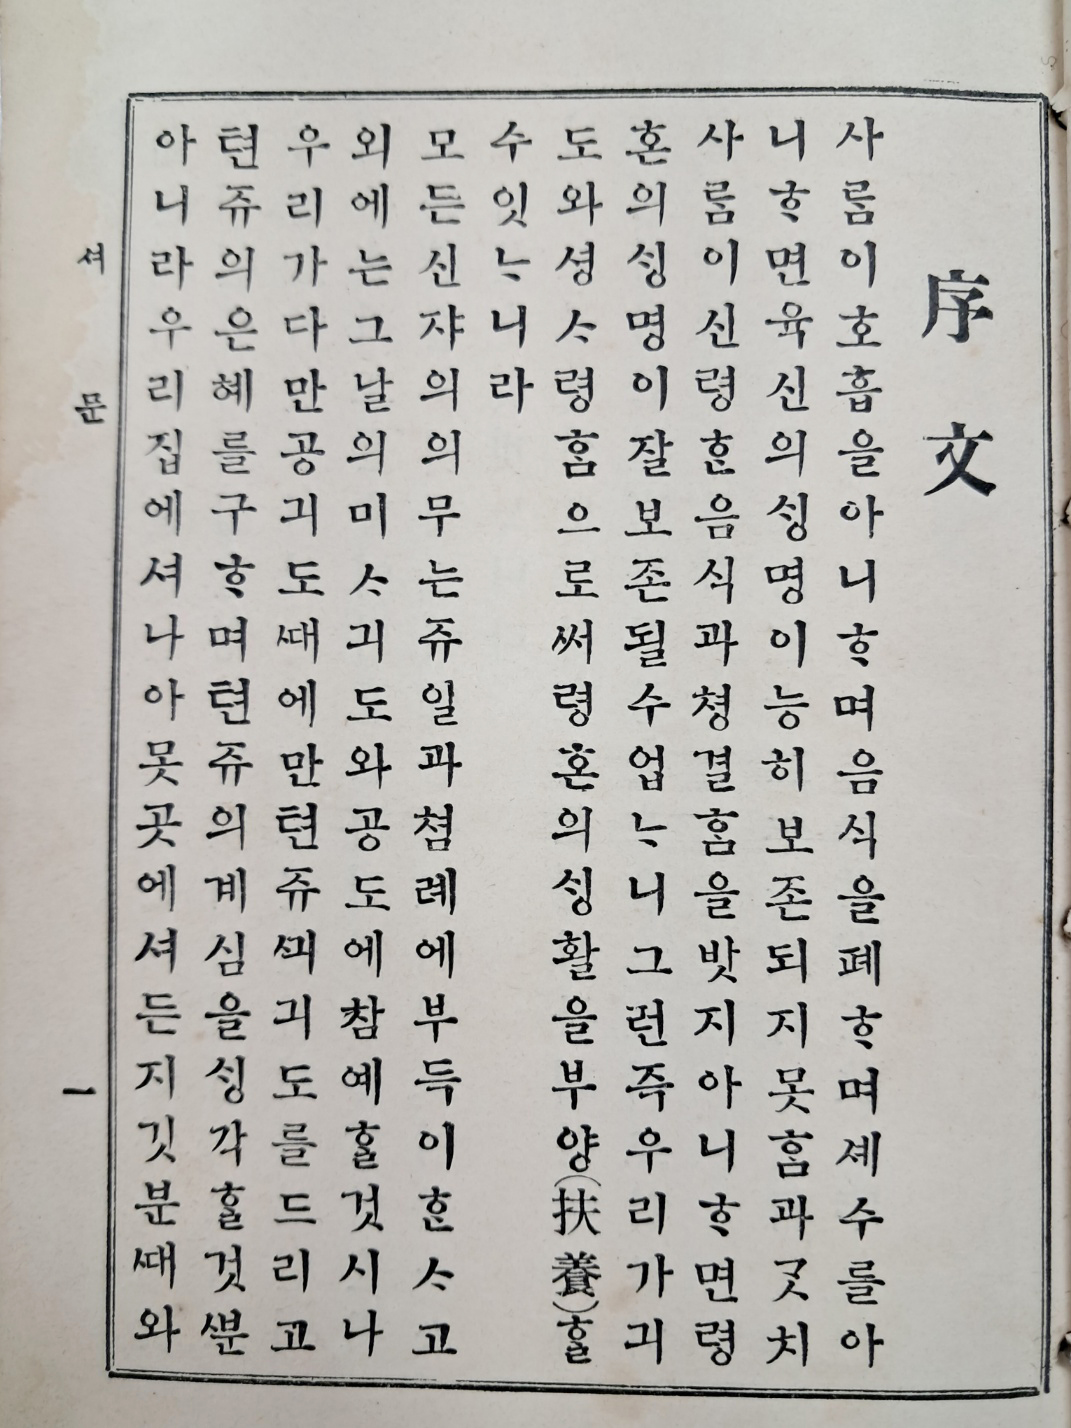 序文
사ᄅᆞᆷ이호흡을아니ᄒᆞ며음식을폐ᄒᆞ며셰수를아
니ᄒᆞ면육신의ᄉᆡᆼ명이능히보존되지못ᄒᆞᆷ과ᄀᆞᆺ치
사ᄅᆞᆷ이신령ᄒᆞᆫ음식과쳥결ᄒᆞᆷ을밧지아니ᄒᆞ면령
혼의ᄉᆡᆼ명이잘보존될수업ᄂᆞ니그런즉우리가긔
도와셩ᄉᆞ령ᄒᆞᆷ으로써령혼의ᄉᆡᆼ활을부양(扶養)ᄒᆞᆯ
수잇ᄂᆞ니라
모든신쟈의의무는쥬일과쳠례에부득이ᄒᆞᆫᄉᆞ고
외에는그날의미ᄉᆞ긔도와공도에참예ᄒᆞᆯ것시나
우리가다만공긔도ᄯᅢ에만텬쥬ᄭᅴ긔도를드리고
텬쥬의은혜를구ᄒᆞ며텬쥬의계심을ᄉᆡᆼ각ᄒᆞᆯ것ᄲᅮᆫ
아니라우리집에셔나아못곳에셔든지깃분ᄯᅢ와
셔문 一